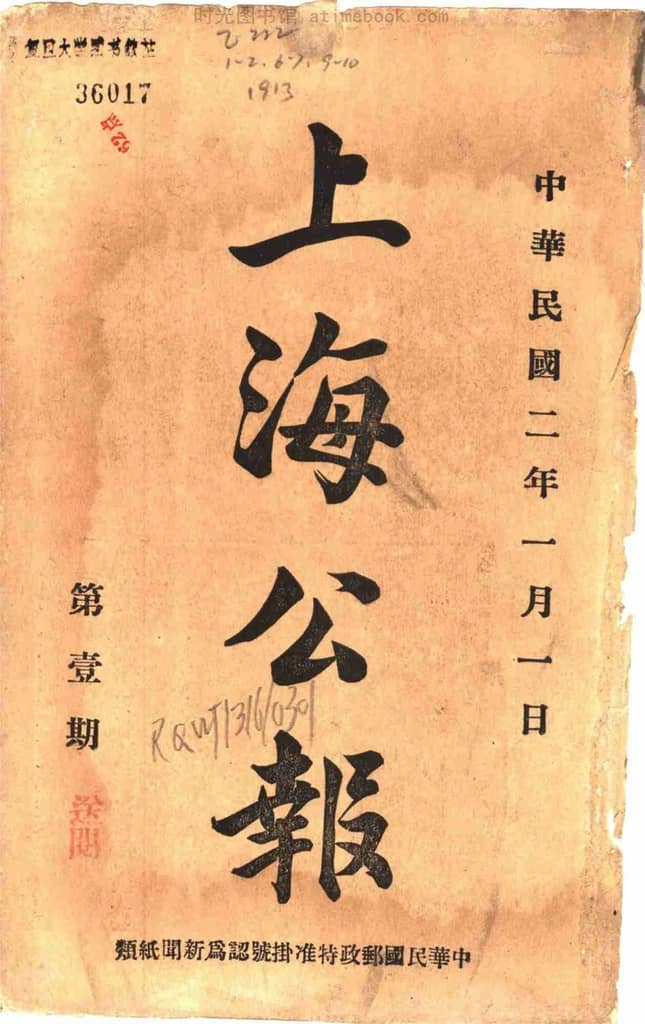 时光图书馆 atimebook.com
乙222
1-2, 6-7, 9-10
1913
36017
中華民國二年一月一日
上海公報
第壹期
送閱
中華民國郵政特准掛號認爲新聞紙類